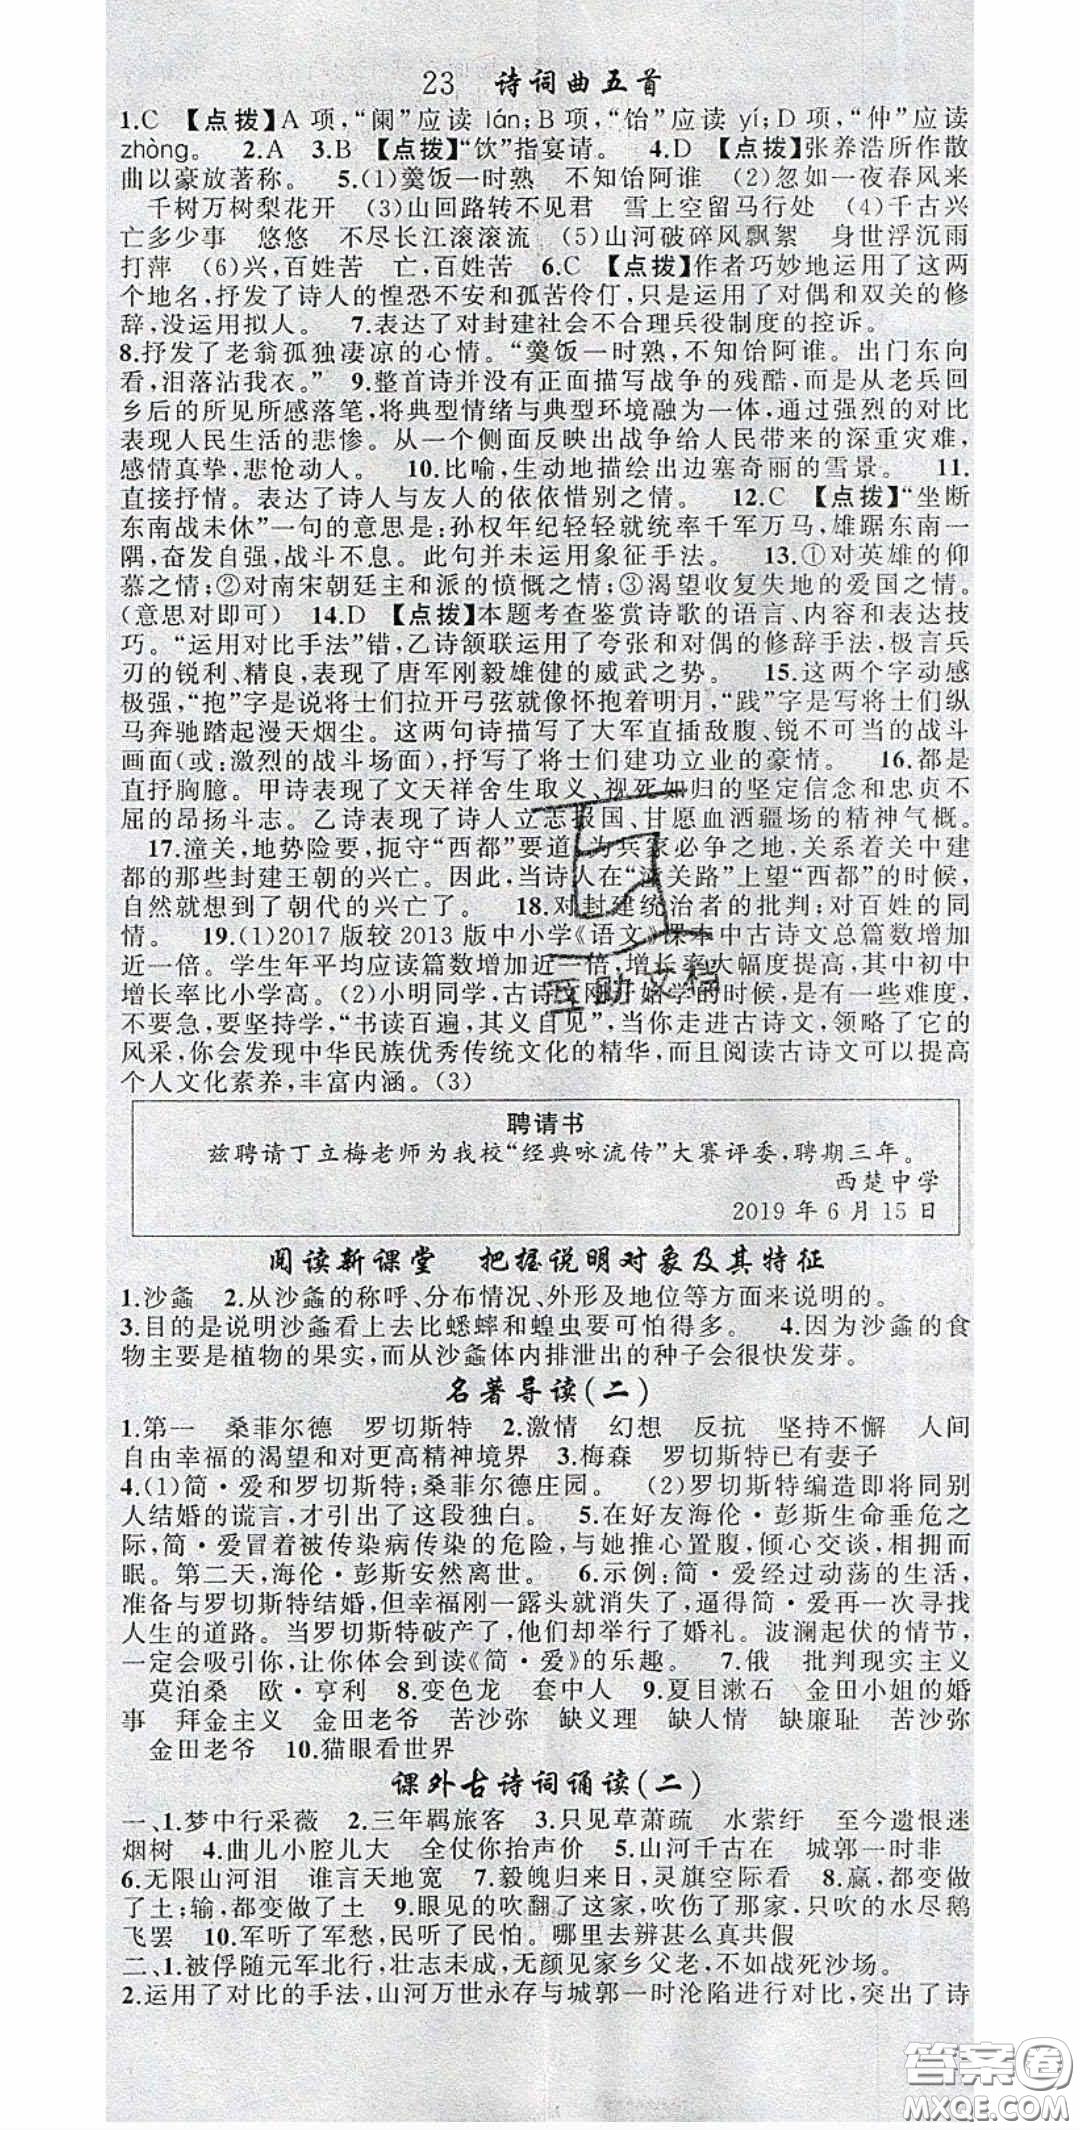 23　诗词曲五首
1.C 【点拨】A 项,“阑”应读 lán;B 项,“饴”应读 yí;D 项,“仲”应读
zhòng。 2.A 3.B 【点拨】“饮”指宴请。 4.D 【点拨】张养浩所作散
曲以豪放著称。 5.(1)羹饭一时熟　不知饴阿谁 (2)忽如一夜春风来
千树万树梨花开 (3)山回路转不见君　雪上空留马行处 (4)千古兴
亡多少事　悠悠　不尽长江滚滚流 (5)山河破碎风飘絮　身世浮沉雨
打萍 (6)兴,百姓苦　亡,百姓苦 6.C 【点拨】作者巧妙地运用了这两
个地名,抒发了诗人的惶恐不安和孤苦伶仃,只是运用了对偶和双关的修
辞,没运用拟人。 7.表达了对封建社会不合理兵役制度的控诉。
8.抒发了老翁孤独凄凉的心情。“羹饭一时熟,不知饴阿谁。出门东向
看,泪落沾我衣。” 9.整首诗并没有正面描写战争的残酷,而是从老兵回
乡后的所见所感落笔,将典型情绪与典型环境融为一体,通过强烈的对比
表现人民生活的悲惨。从一个侧面反映出战争给人民带来的深重灾难,
感情真挚,悲怆动人。 10.比喻,生动地描绘出边塞奇丽的雪景。 11.
直接抒情。表达了诗人与友人的依依惜别之情。 12.C 【点拨】“坐断
东南战未休”一句的意思是:孙权年纪轻轻就统率千军万马,雄踞东南一
隅,奋发自强,战斗不息。此句并未运用象征手法。 13.①对英雄的仰
慕之情;②对南宋朝廷主和派的愤慨之情;③渴望收复失地的爱国之情。
(意思对即可) 14.D 【点拨】本题考查鉴赏诗歌的语言、内容和表达技
巧。“运用对比手法”错,乙诗颔联运用了夸张和对偶的修辞手法,极言兵
刃的锐利、精良,表现了唐军刚毅雄健的威武之势。 15.这两个字动感
极强,“抱”字是说将士们拉开弓弦就像怀抱着明月,“践”字是写将士们纵
马奔驰踏起漫天烟尘。这两句诗描写了大军直插敌腹、锐不可当的战斗
画面(或:激烈的战斗场面),抒写了将士们建功立业的豪情。 16.都是
直抒胸臆。甲诗表现了文天祥舍生取义、视死如归的坚定信念和忠贞不
屈的昂扬斗志。乙诗表现了诗人立志报国、甘愿血洒疆场的精神气概。
17.潼关,地势险要,扼守“西都”要道,为兵家必争之地,关系着关中建
都的那些封建王朝的兴亡。因此,当诗人在“潼关路”上望“西都”的时候,
自然就想到了朝代的兴亡了。 18.对封建统治者的批判;对百姓的同
情。 19.(1)2017 版较 2013 版中小学《语文》课本中古诗文总篇数增加
近一倍。学生年平均应读篇数增加近一倍,增长率大幅度提高,其中初中
增长率比小学高。(2)小明同学,古诗文刚开始学的时候,是有一些难度,
不要急,要坚持学,“书读百遍,其义自见”,当你走进古诗文,领略了它的
风采,你会发现中华民族优秀传统文化的精华,而且阅读古诗文可以提高
个人文化素养,丰富内涵。(3)
聘请书
兹聘请丁立梅老师为我校“经典咏流传”大赛评委,聘期三年。
西楚中学
2019 年 6 月 15 日
互助文档
阅读新课堂　把握说明对象及其特征
1.沙螽 2.从沙螽的称呼、分布情况、外形及地位等方面来说明的。
3.目的是说明沙螽看上去比蟋蟀和蝗虫要可怕得多。 4.因为沙螽的食
物主要是植物的果实,而从沙螽体内排泄出的种子会很快发芽。
名著导读(二)
1.第一　桑菲尔德　罗切斯特 2.激情　幻想　反抗　坚持不懈　人间
自由幸福的渴望和对更高精神境界 3.梅森　罗切斯特已有妻子
4.(1)简·爱和罗切斯特;桑菲尔德庄园。 (2)罗切斯特编造即将同别
人结婚的谎言,才引出了这段独白。 5.在好友海伦·彭斯生命垂危之
际,简·爱冒着被传染病传染的危险,与她推心置腹,倾心交谈,相拥而
眠。第二天,海伦·彭斯安然离世。 6.示例:简·爱经过动荡的生活,
准备与罗切斯特结婚,但幸福刚一露头就消失了,逼得简·爱再一次寻找
人生的道路。当罗切斯特破产了,他们却举行了婚礼。波澜起伏的情节,
一定会吸引你,让你体会到读《简·爱》的乐趣。 7.俄　批判现实主义
莫泊桑　欧·亨利 8.变色龙　套中人 9.夏目漱石　金田小姐的婚
事　拜金主义　金田老爷　苦沙弥　缺义理　缺人情　缺廉耻　苦沙弥
金田老爷 10.猫眼看世界
课外古诗词诵读(二)
一、1.梦中行采薇 2.三年羁旅客 3.只见草萧疏　水萦纡　至今遗恨迷
烟树 4.曲儿小腔儿大　全仗你抬声价 5.山河千古在　城郭一时非
6.无限山河泪　谁言天地宽 7.毅魄归来日,灵旗空际看 8.赢,都变做
了土;输,都变做了土 9.眼见的吹翻了这家,吹伤了那家,只吹的水尽鹅
飞罢 10.军听了军愁,民听了民怕。哪里去辨甚么真共假
二、1.被俘随元军北行,壮志未成,无颜见家乡父老,不如战死沙场。
2.运用了对比的手法,山河万世永存与城郭一时沦陷进行对比,突出了诗
答案圈
MXQE.COM